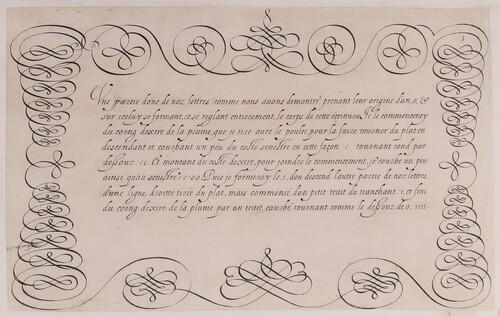 Vne partie donc de noz lettres (comme nous auons demontré prenant leur origine dun.o, &
sur iceluy se formant, et se reglant entierement, le corps de cette ecriture) Je le commenceray
du coing dextre de la plume, que je tire auec le poulce, pour la faire tourner du plat en
descendant et courbant un peu du costé senestre en cette façon c tournant rond par
dessouz :c. A montant du costé dextre, pour joindre le commencement, je courbe un peu
ainsi qu'au senestre : Puis je formeray le, i, dou descend lautre partie de noz lettres,
d'une ligne, droitte tirée du plat, mais commencé d'un petit trait du tranchant ı, et fini
du coing dextre de la plume par un trait courbé tournant comme le dessouz de o. ıııı